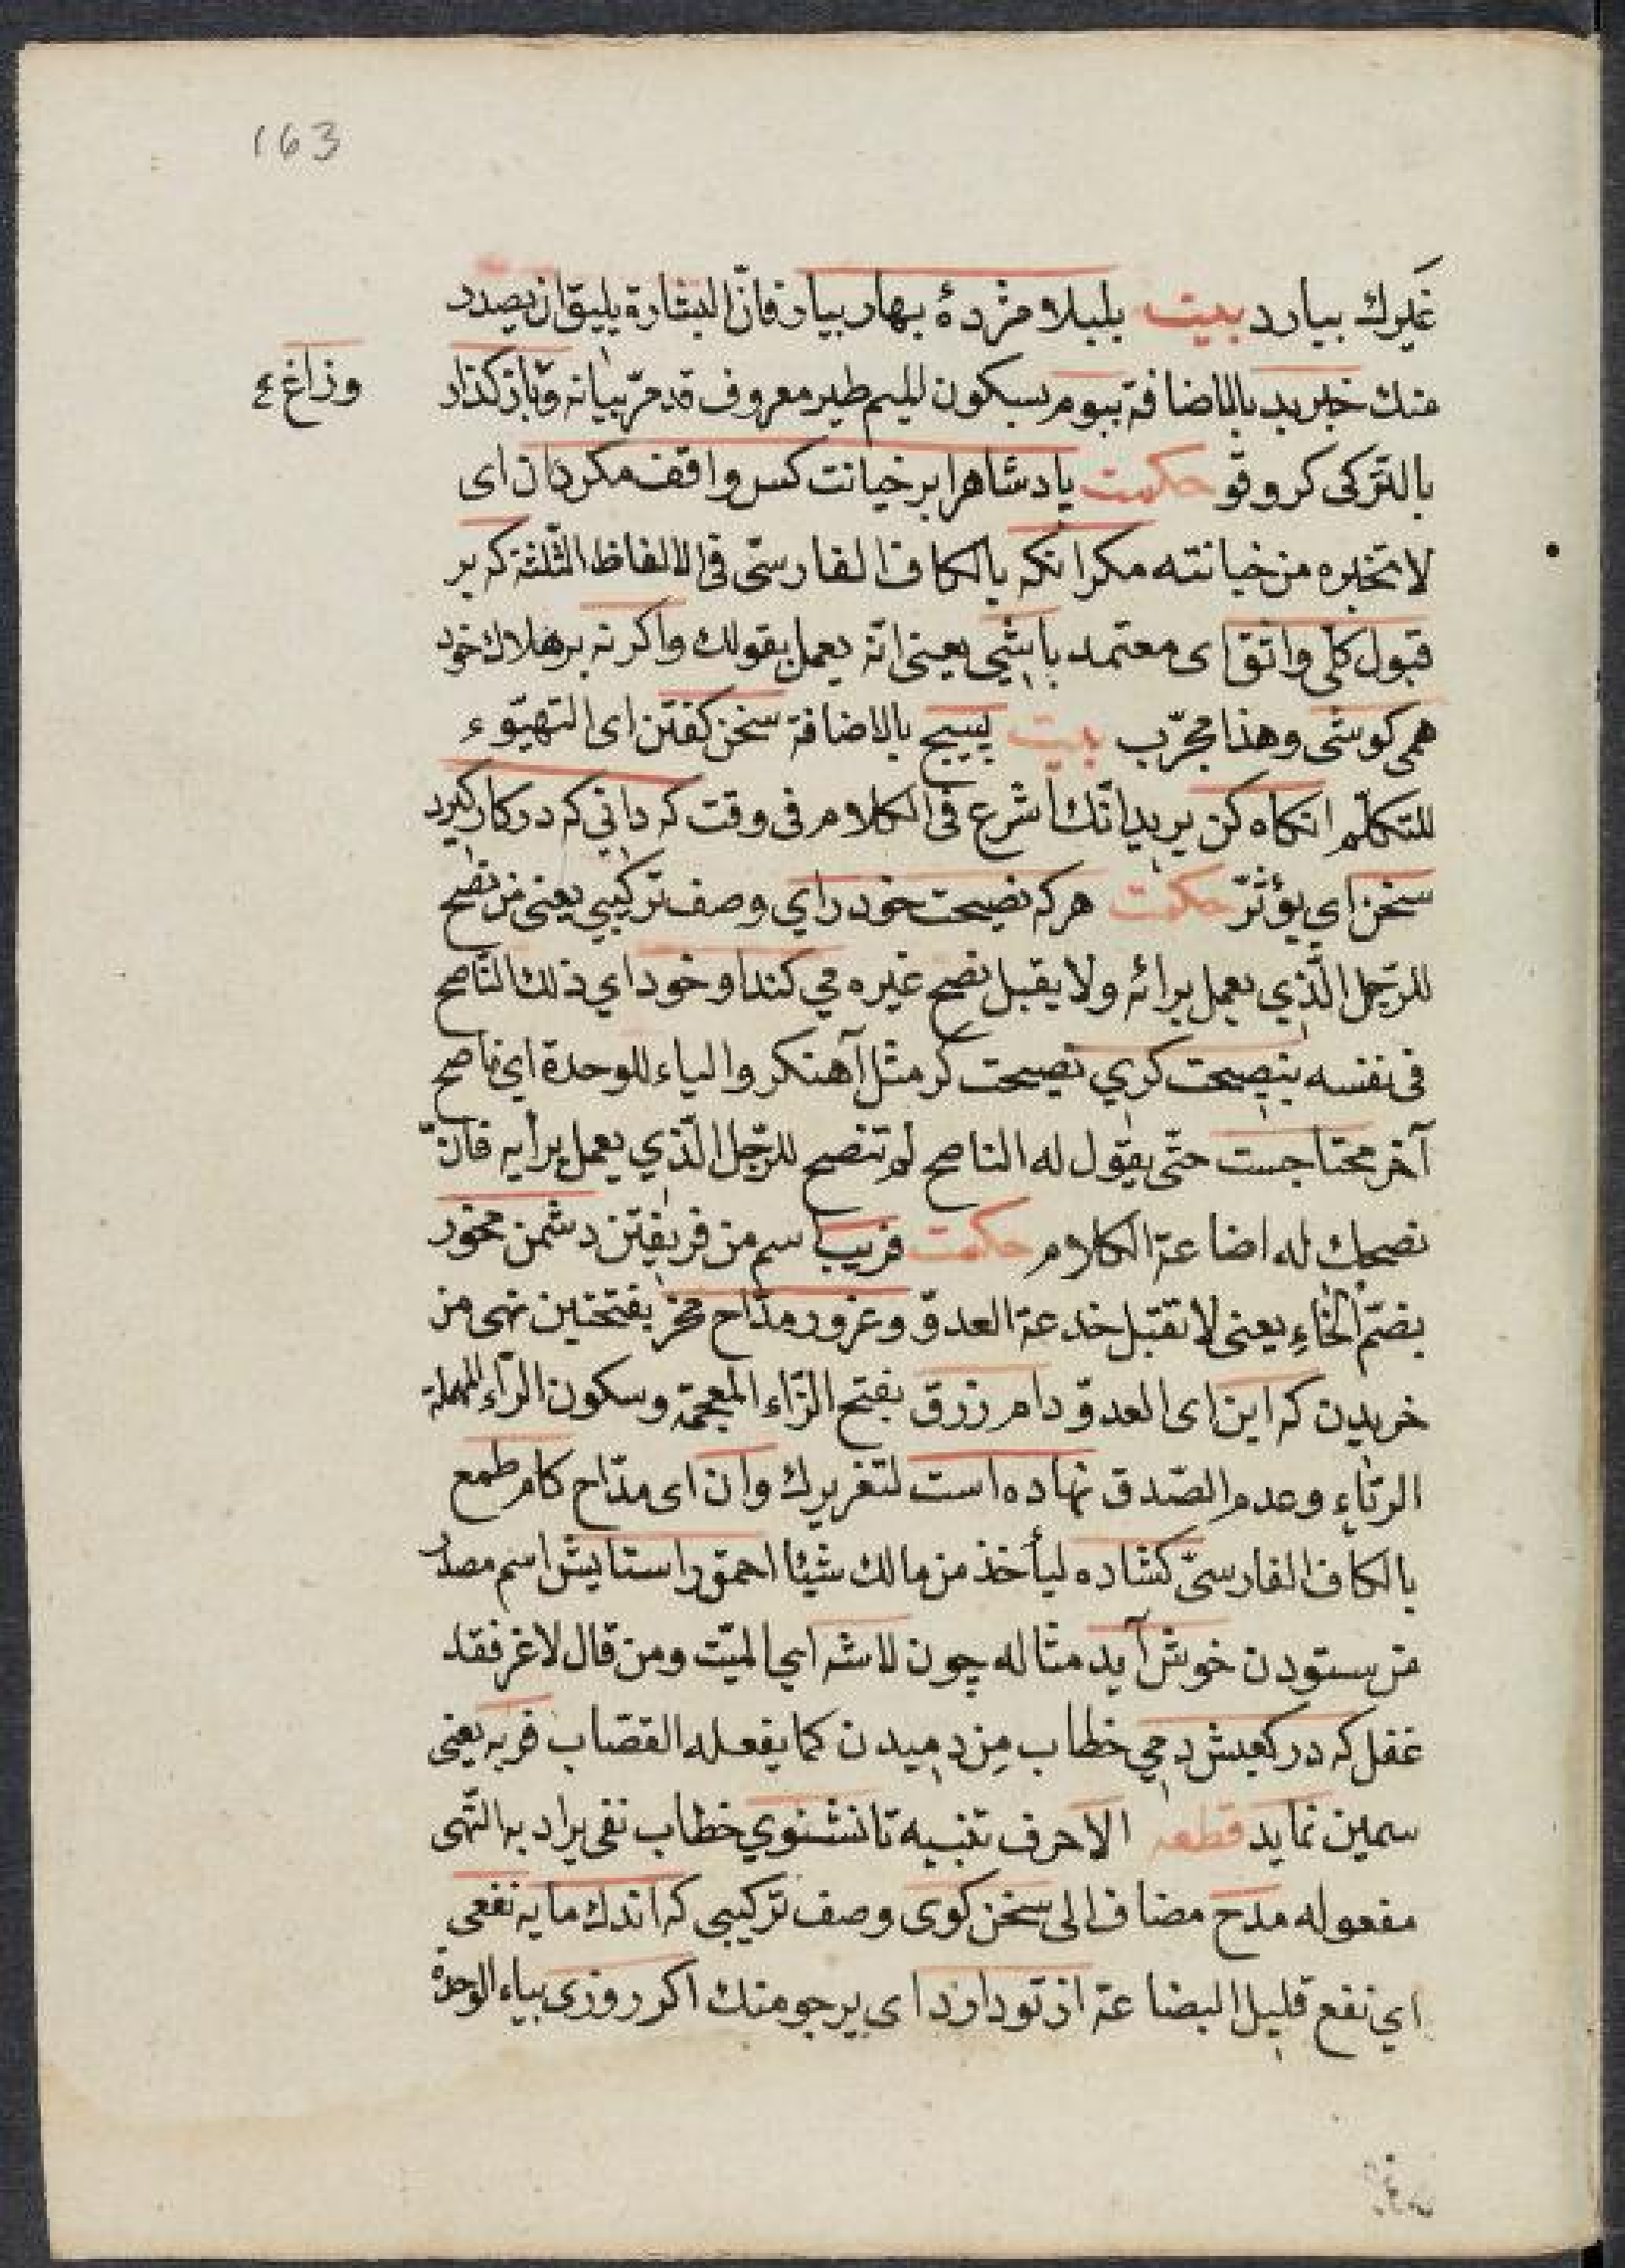 163
غيرك بيارد بيت بلبلا مژدهٔ بهار بيار فانّ البشارة يليق ان يصدر
منك خبر بد بالاضافة ببوم بسكون الميم طير معروف قد مرّ بيانه و باز كذار
وزاغ ع
بالتركى كروقو حكمت پادشاهرا بر خيانت كس واقف مكردان اى
لا تخبره من خيانته مكر انكه بالكاف الفارسّى فى الالفاظ الثّلثة كه بر
قبول كلى واثق اى معتمد باشى يعنى انّه يعمل بقولك واكر نه بر هلاك خود
همى كوشى وهذا مجرّب بيت بسيج بالاضافة سخن كفتن اى التهيّوء
للتكلّم انكاه كن يريد انّك اشرع فى الكلام فى وقت كه دانى كه در كار كيرد
سخن اي يؤثّر حكمت هر كه نصيحت خود راي وصف تركيبي يعنى من نصح
للرّجل الّذي يعمل برائه ولا يقبل نصح غيره مي كند او خود اي ذلك النّاصح
فى نفسه بنصيحت كري نصيحت كر مثل آهنكر والياء للوحدة اي ناصح
آخر محتاجست حتّى يقول له الناصح لم تنصح للرّجل الّذي يعمل برأيه فانّ
نصحك له اضاعة الكلام حكمت فريب اسم من فريفتن دشمن مخور
بضمّ الخاءِ يعنى لا تقبل خدعة العدوّ وغرور مدّاح مخر بفتحتين نهى من
خريدن كه اين اى العدوّ دام زرق بفتح الزّاء المعجمة وسكون الرّاء المهملة
الرّياء وعدم الصّدق نهاده است لتغريرك وان اى مدّاح كام طمع
بالكاف الفارسىّ كشاده ليأخذ من مالك شيئا احمق را ستايش اسم مصدر
من ستودن خوش آيد مثاله چون لاشه اي الميّت ومن قال لاغر فقد
غفل كه در كعبش دمي خطاب مِن دميدن كما يفعله القصّاب فربه يعنى
سمين نمايد قطعه الا حرف تنبيه تا نشنوي خطاب نفى يراد به النّهى
مفعوله مدح مضاف الى سخن كوى وصف تركيبى كه اندك مايه نفعى
اي نفع قليل البضاعة از تو دارد اى يرجو منك اكر روزى بياء الوحدة